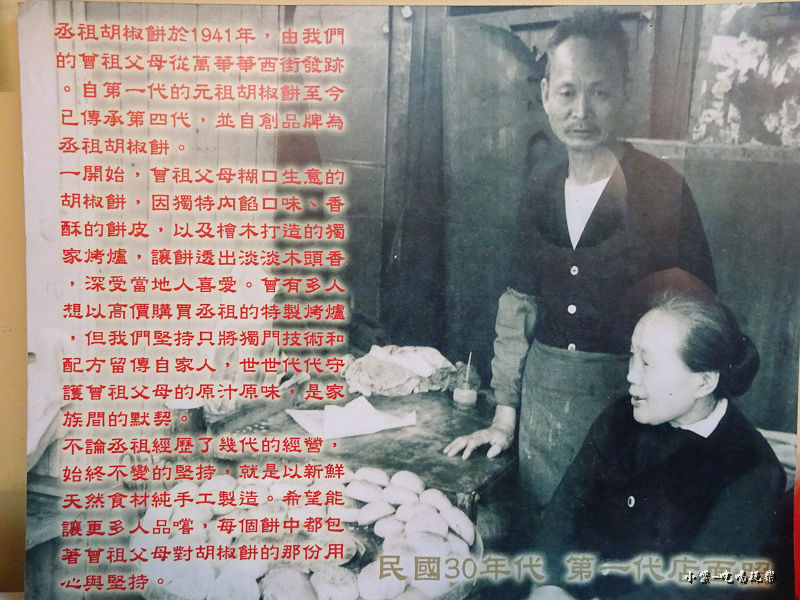 丞祖胡椒餅於1941年，由我們
的曾祖父母從萬華華西街發跡
。自第一代的元祖胡椒餅至今
已傳承第四代，並自創品牌為
丞祖胡椒餅。
一開始，曾祖父母糊口生意的
胡椒餅，因獨特內餡口味、香
酥的餅皮，以及檜木打造的獨
家烤爐，讓餅透出淡淡木頭香
，深受當地人喜愛。曾有多人
想以高價購買丞祖的特製烤爐
，但我們堅持只將獨門技術和
配方留傳自家人，世世代代守
護曾祖父母的原汁原味，是家
族間的默契。
不論丞祖經歷了幾代的經營，
始終不變的堅持，就是以新鮮
天然食材純手工製造。希望能
讓更多人品嚐，每個餅中都包
著曾祖父母對胡椒餅的那份用
心與堅持。
民國30年代 第一代店面照
小蠻~吃喝玩樂